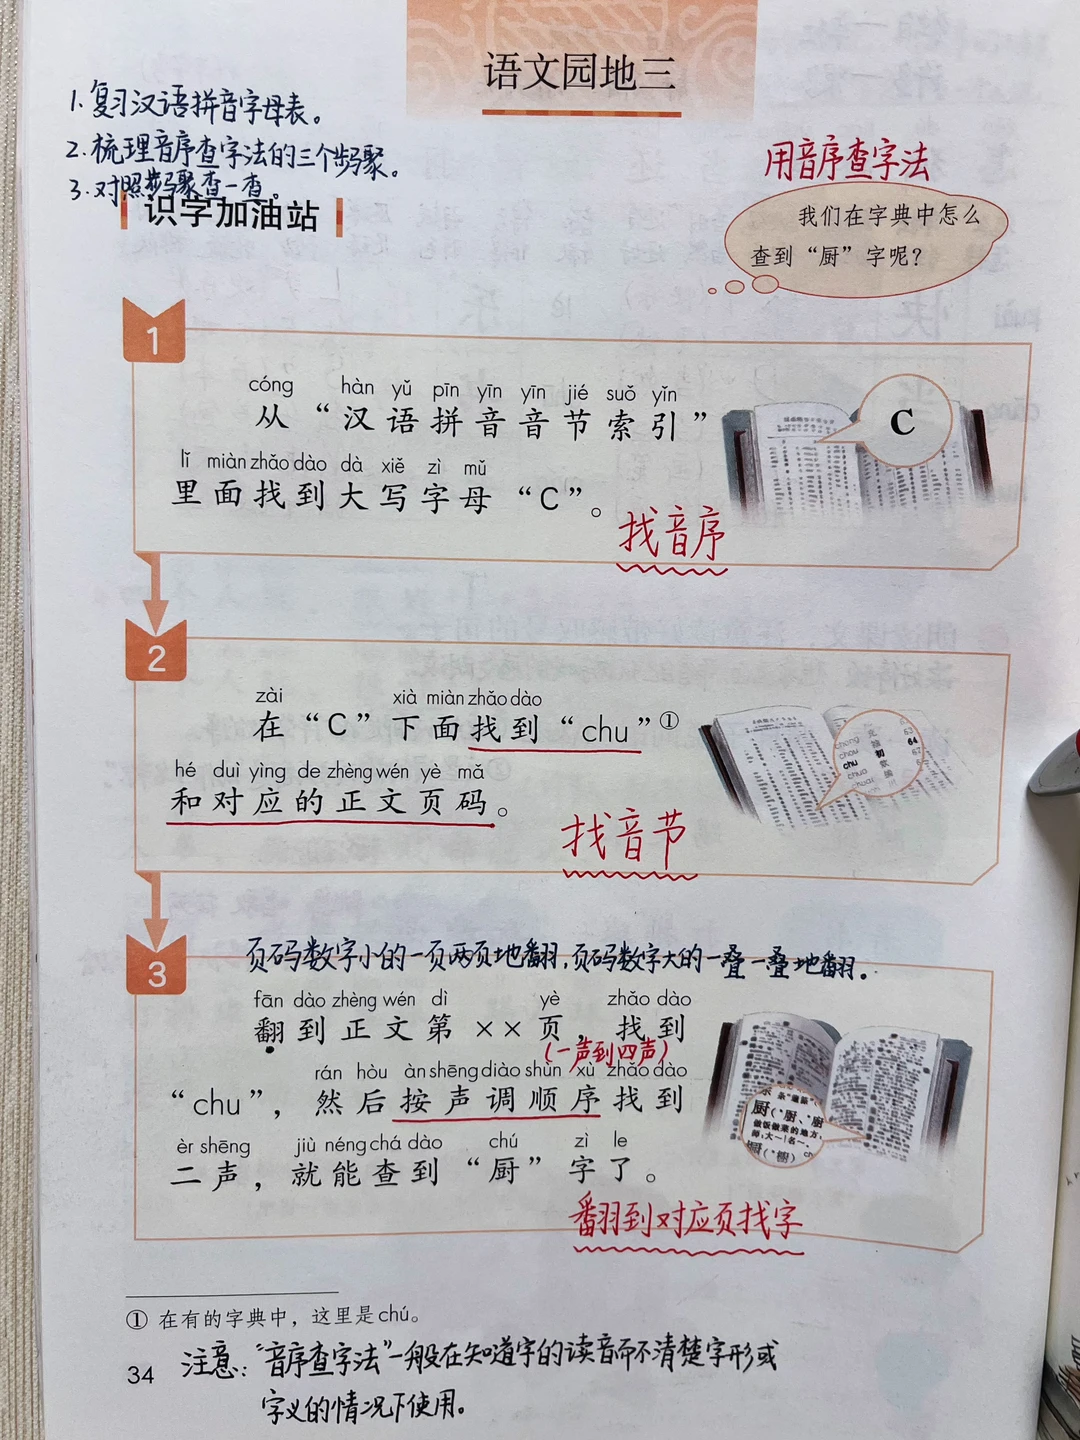 语文园地三
1.复习汉语拼音字母表。
2.梳理音序查字法的三个步骤。
3.对照步骤查一查。
识字加油站
用音序查字法
我们在字典中怎么
查到“厨”字呢？
1
cóng hàn yǔ pīn yīn yīn jié suǒ yǐn
从“汉语拼音音节索引”
lǐ miàn zhǎo dào dà xiě zì mǔ
里面找到大写字母“C”。
C
找音序
2
zài xià miàn zhǎo dào
在“C”下面找到“chu”①
hé duì yìng de zhèng wén yè mǎ
和对应的正文页码。
chu
初
64
找音节
3
页码数字小的一页两页地翻，页码数字大的一叠一叠地翻。
fān dào zhèng wén dì yè zhǎo dào
翻到正文第××页，找到
（一声到四声）
rán hòu àn shēng diào shùn xù zhǎo dào
“chu”，然后按声调顺序找到
èr shēng jiù néng chá dào chú zì le
二声，就能查到“厨”字了。
做饭做菜的地方
翻到对应页找字
① 在有的字典中，这里是chú。
34
注意：“音序查字法”一般在知道字的读音而不清楚字形或
字义的情况下使用。